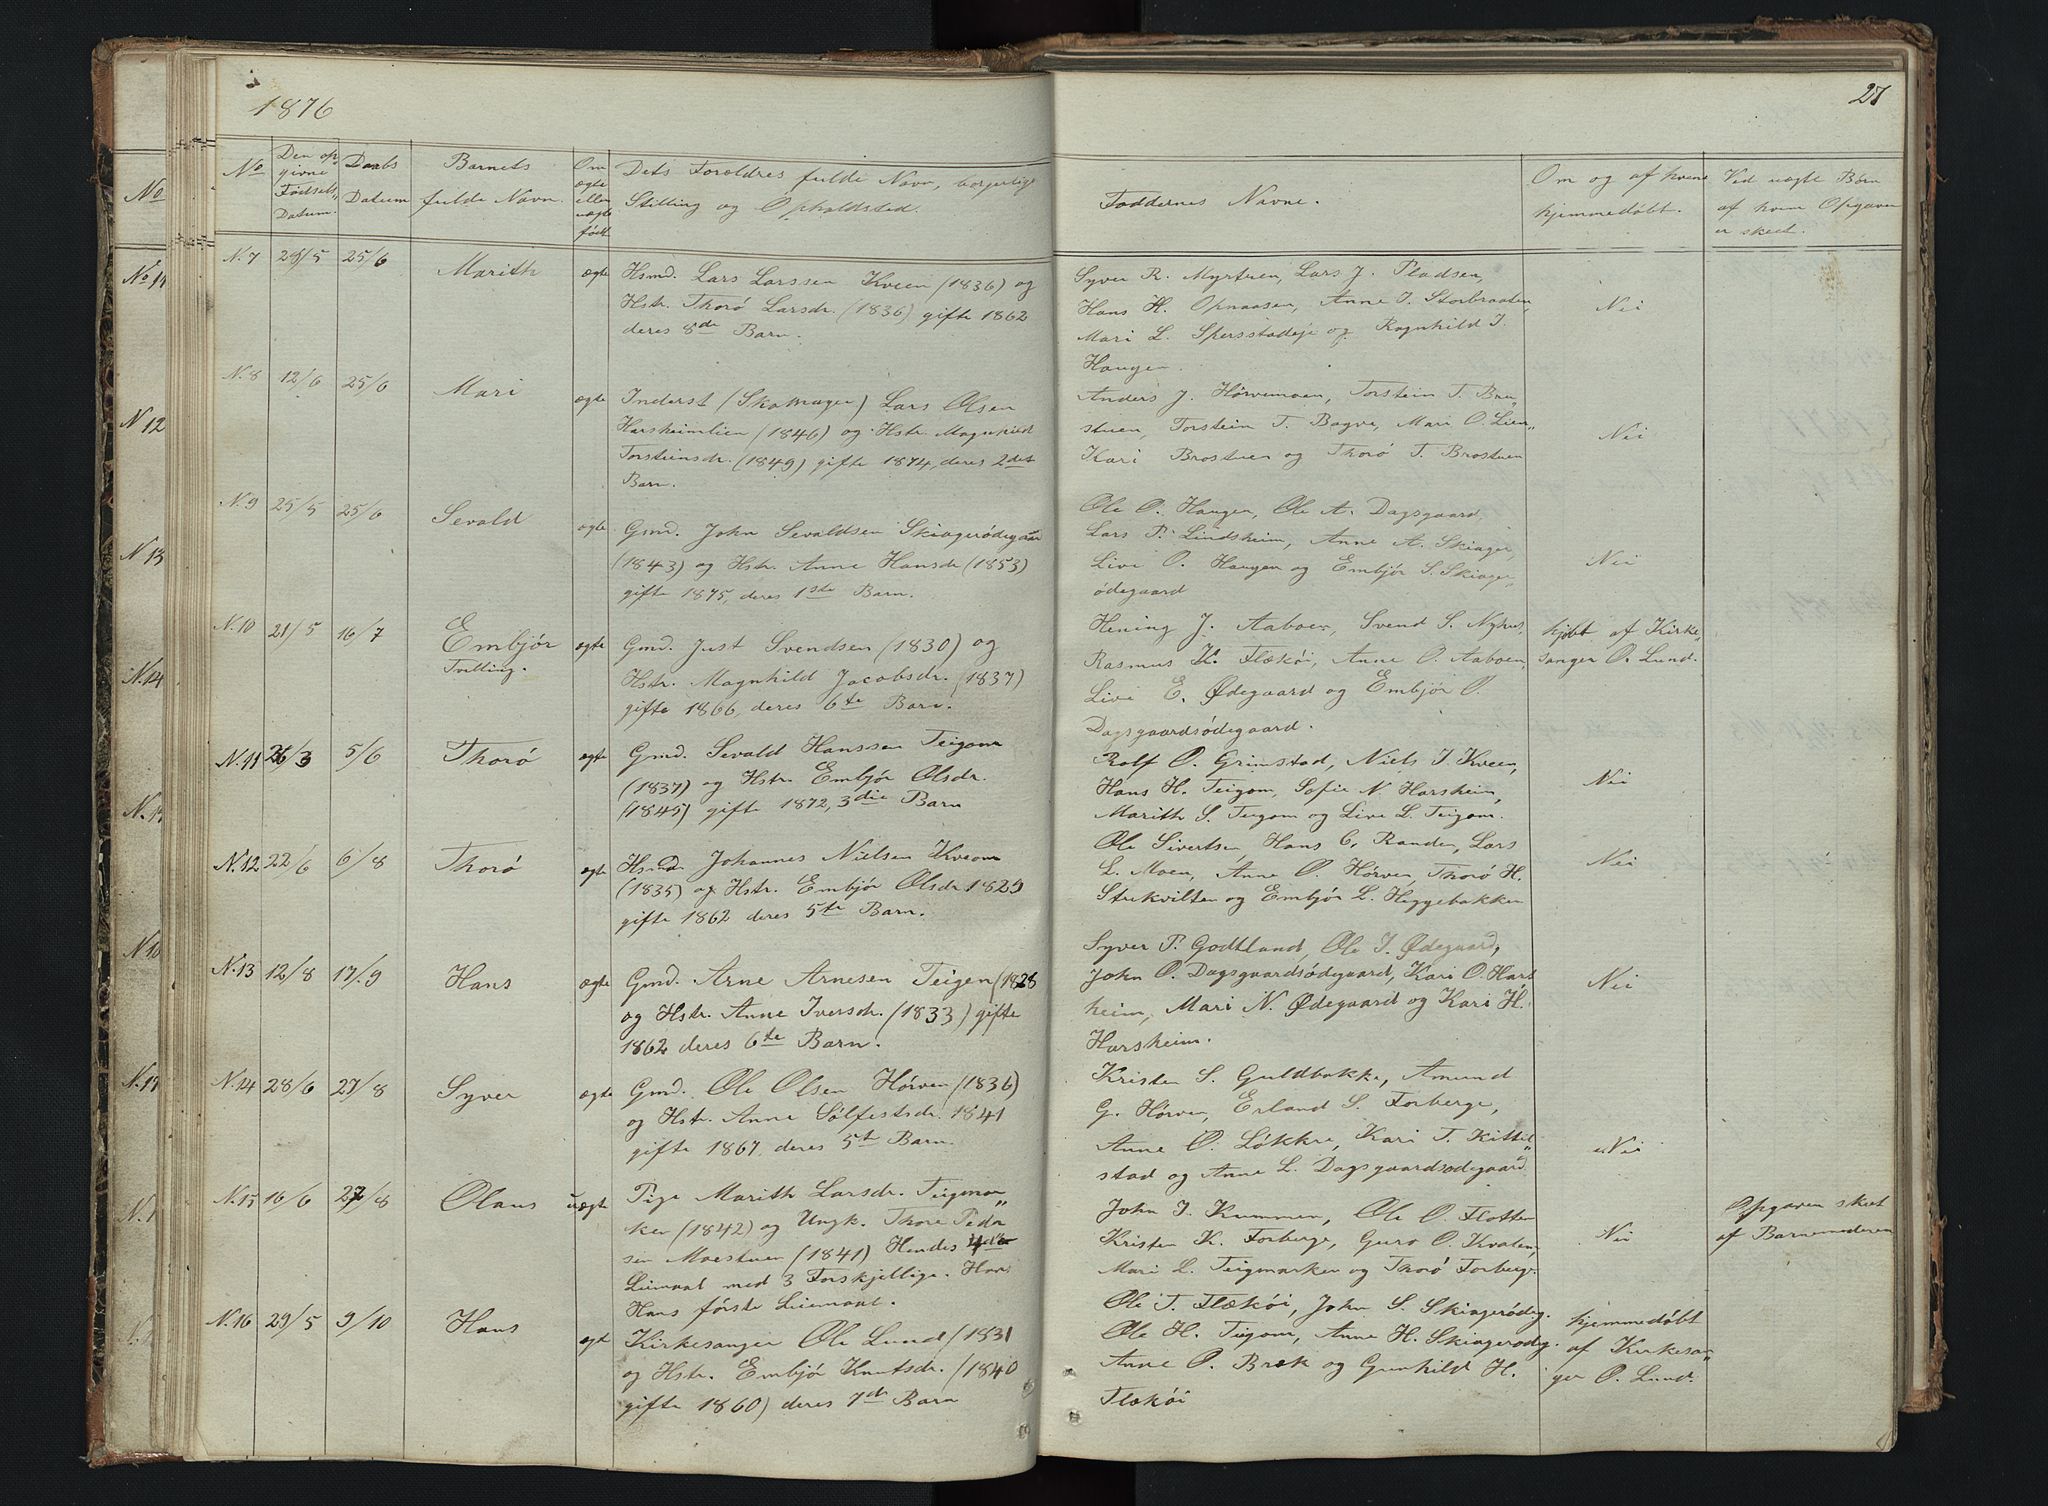 1876
27
No
Den op
givne
Fødsels
Datum.
Daabs
Datum
Barnets
fulde Navn.
Om
ægte
eller
uægte
født
Dets Forældres fulde Navn, borgerlige
Stilling og Opholdsted.
Faddernes Navne.
Om og af hvem
hjemmedøbt.
Ved uægte Børn
af hvem Opgaven
er skeet.
No
N. 7 28/5 25/6 Marith ægte
Hsmd. Lars Larssen Kveen (1836) og
Hstr. Thorø Larsdr. (1836) gifte 1862
deres 8de Barn.
Syver R. Myrtuen, Lars J. Pladsen,
Hans H. Opnaasen, Anne I. Storbraaten,
Mari L. Spersstadeje og Ragnhild I.
Haugen.
Nei
N. 8 12/6 25/6 Mari ægte
Inderst (Skomager) Lars Olsen
Harsheimlien (1846) og Hstr. Magnhild
Torsteinsdr. (1849) gifte 1874, deres 2det
Barn.
Anders J. Hørvemoen, Torstein T. Bro„
stuen, Torstein T. Bagve, Mari O. Lien„
Kari Brostuen og Thorø T. Brostuen
Nei
N. 9 25/5 25/6 Sevald ægte
Gmd. John Sevaldsen Skiagerødegaar
(1843) og Hstr. Anne Hansdr (1853)
gifte 1875, deres 1ste Barn.
Ole O. Haugen, Ole A. Dagsgaard,
Lars P. Lindsheim, Anne A. Skiager,
Livi O. Haugen og Embjør S. Skiager„
ødegaard
Nei
N. 10 21/5 16/7 Embjør ægte
Tvilling.
Gmd. Just Svendsen (1830) og
Hstr. Magnhild Jacobsdr. (1837)
gifte 1866, deres 6te Barn.
Hening J. Aaboen, Svend S. Nyhus,
Rasmus K. Flækøi, Anne O. Aaboen,
Livi E. Ødegaard og Embjør O.
Dagsgaardsødegaard.
hjdbt af Kirke„
sanger O. Lund.
N. 11 26/3 5/6 Thorø ægte
Gmd. Sevald Hanssen Teigom
(1837) og Hstr. Embjør Olsdr.
(1845) gifte 1872, 3die Barn
Rolf O. Grimstad, Niels I. Kveen,
Hans H. Teigom, Sofie N. Harsheim,
Marith S. Teigom og Live L. Teigom.
Nei
N. 12 22/6 6/8 Thorø ægte
Hsmd. Johannes Nielsen Kveom
(1835) og Hstr. Embjør Olsdr. 1829
gifte 1862 deres 5te Barn.
Ole Sivertsen Hans C. Randen, Lars
L. Moen, Anne O. Hørven, Thorø H.
Stukvilten og Embjør L. Heggebakken
Nei
N. 13 12/8 17/9 Hans ægte
Gmd. Arne Arnesen Teigen (1828
og Hstr. Anne Iversdr. (1833) gifte
1862 deres 6te Barn.
Syver P. Godtland, Ole I. Ødegaard,
John O. Dagsgaardsødegaard, Kari O. Hars
heim, Mari N. Ødegaard og Kari H.
Harsheim.
Nei
N. 14 28/6 27/8 Syver ægte
Gmd. Ole Olsen Hørven (1836)
og Hstr. Anne Sølfestsdr. 1841
gifte 1867, deres 5te Barn.
Kristen S. Guldbakke, Amund
G. Hørven, Erland S. Forberge,
Anne O. Løkkre, Kari T. Kittil„
stad og Anne L. Dagsgaardsødegaard
Nei
N. 15 16/6 27/8 Olaus uægte
Pige Marith Larsdr. Teigmar„
ker (1842) og Ungk. Thore Peder
sen Moestuen (1841) Hendes 4de
Leiemaal med 3 Forskjellige. Hans
Hans første Leiemaal.
John I. Kummen, Ole O. Flotten
Kristen K. Forberge, Guro O. Kvalen,
Mari L. Teigmarken og Thorø Forberg.
Nei
Opgaven skeet
af Barnemoderen
N. 16 29/5 9/10 Hans ægte
Kirkesanger Ole Lund (1831
og Hstr. Embjør Knutsdr. (1840
gifte 1860) deres 7de Barn
Ole T. Flækøi, John S. Skiagerødeg.
Ole H. Teigom, Anne H. Skiagerødeg.
Anne O. Bræk og Gunhild H.
Flækøi
hjemmedøbt
af Kirkesan„
ger O. Lund.
N 12
N. 13
N. 14